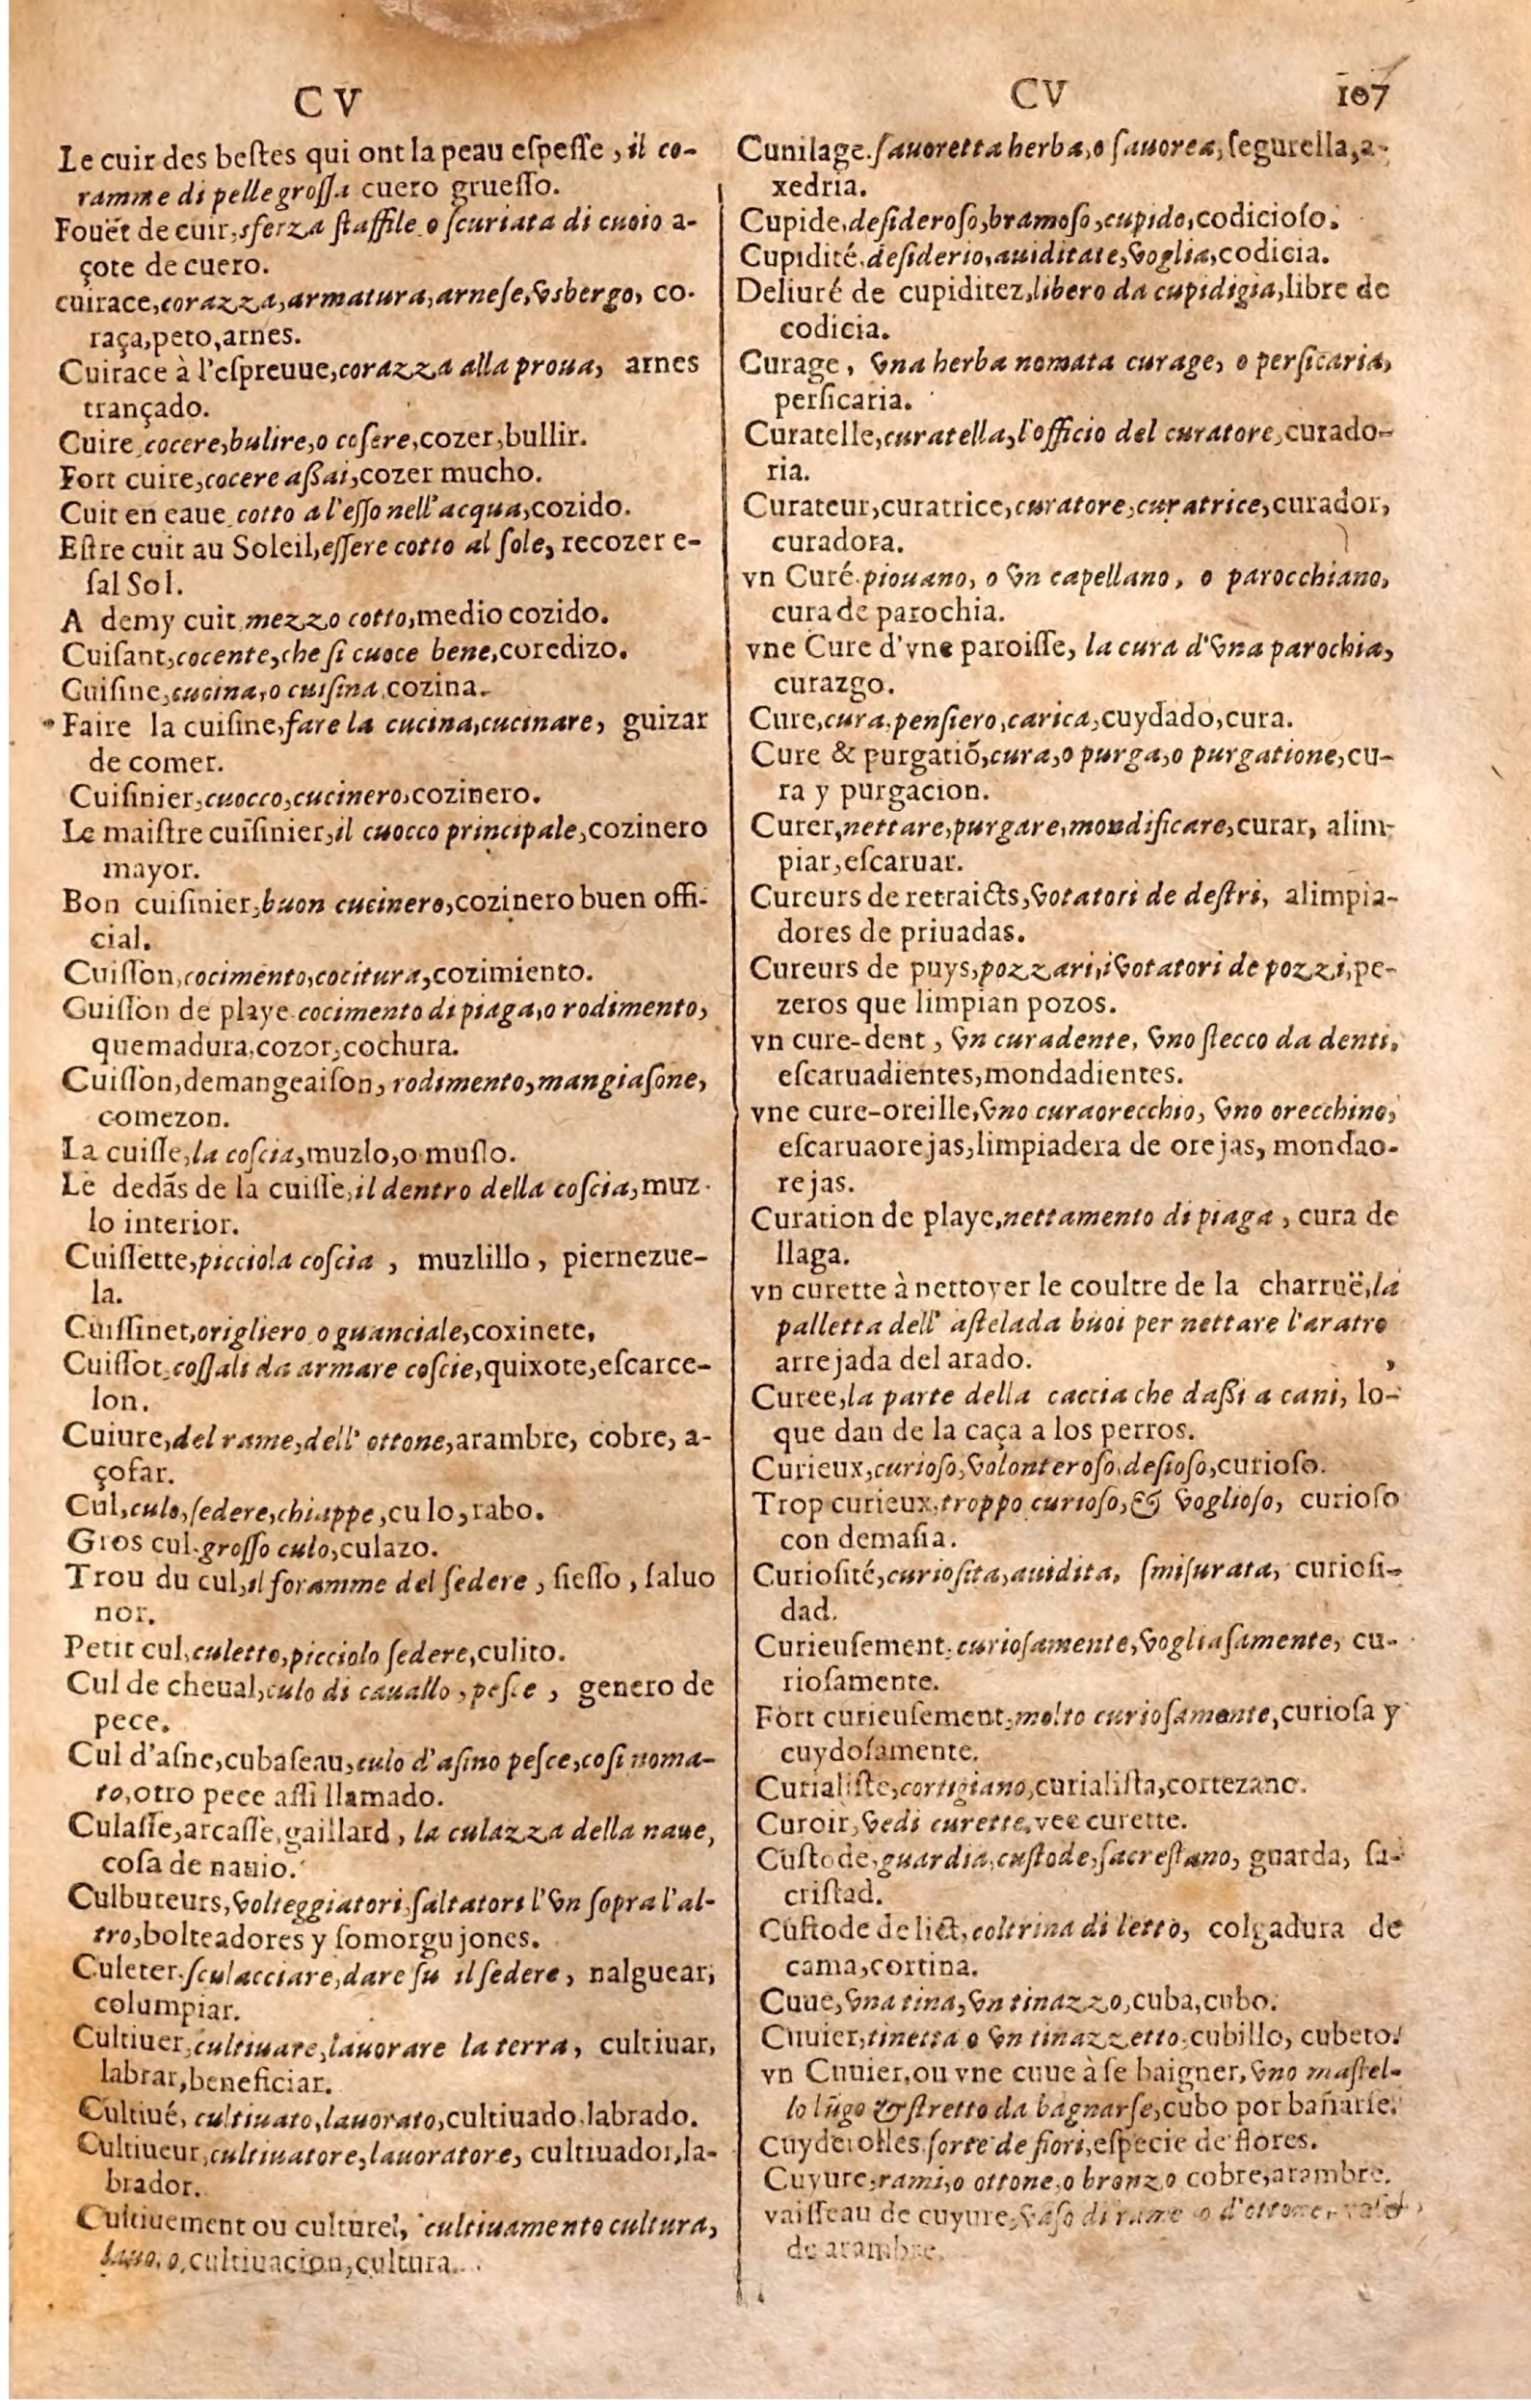 CV
Le cuir des bestes qui ont la peau espesse, il co-
ramme di pelle grossa cuero gruesso.
Fouët de cuir, sferza staffile o scuriata di cuoio a-
çote de cuero.
cuirace, corazza, armatura, arnese, vsbergo, co-
raça, peto, arnes.
Cuirace à l'espreuue, corazza alla proua, arnes
trançado.
Cuire, cocere, bulire, o cosere, cozer, bullir.
Fort cuire, cocere assai, cozer mucho.
Cuit en eaue, cotto a l'esso nell'acqua, cozido.
Estre cuit au Soleil, essere cotto al sole, recozer e-
sal Sol.
A demy cuit, mezzo cotto, medio cozido.
Cuisant, cocente, che si cuoce bene, coredizo.
Cuisine, cucina, o cuisina, cozina.
Faire la cuisine, fare la cucina, cucinare, guizar
de comer.
Cuisinier, cuocco, cucinero, cozinero.
Le maistre cuisinier, il cuocco principale, cozinero
mayor.
Bon cuisinier, buon cucinero, cozinero buen offi-
cial.
Cuisson, cocimento, cocitura, cozimiento.
Cuisson de playe cocimento di piaga, o rodimento,
quemadura, cozor, cochura.
Cuisson, demangeaison, rodimento, mangiasone,
comezon.
La cuisse, la coscia, muzlo, o muslo.
Le dedãs de la cuisse, il dentro della coscia, muz-
lo interior.
Cuissette, picciola coscia, muzlillo, piernezue-
la.
Cuissinet, origliero o guanciale, coxinete,
Cuissot, cossali da armare coscie, quixote, escarce-
lon.
Cuiure, del rame, dell' ottone, arambre, cobre, a-
çofar.
Cul, culo, sedere, chiappe, culo, rabo.
Gros cul. grosso culo, culazo.
Trou du cul, il foramme del sedere, siesso, saluo
nor.
Petit cul, culetto, picciolo sedere, culito.
Cul de cheual, culo di cauallo, pesce, genero de
pece.
Cul d'asne, cubaseau, culo d'asino pesce, cosi noma-
to, otro pece assi llamado.
Culasse, arcasse, gaillard, la culazza della naue,
cosa de nauio.
Culbuteurs, volteggiatori, saltatori l'vn sopra l'al-
tro, bolteadores y somorgujones.
Culeter. sculacciare, dare su il sedere, nalguear,
columpiar.
Cultiuer, cultiuare, lauorare la terra, cultiuar,
labrar, beneficiar.
Cultiué, cultiuato, lauorato, cultiuado, labrado.
Cultiueur, cultiuatore, lauoratore, cultiuador, la-
brador.
Cultiuement ou culture, cultiuamento cultura,
cultiuacion, cultura.
CV 107
Cunilage. sauoretta herba, o sauorea, segurella, a-
xedria.
Cupide, desideroso, bramoso, cupido, codicioso.
Cupidité, desiderio, auiditate, voglia, codicia.
Deliuré de cupiditez, libero da cupidigia, libre de
codicia.
Curage, vna herba nomata curage, o persicaria,
persicaria.
Curatelle, curatella, l'officio del curatore, curado-
ria.
Curateur, curatrice, curatore, curatrice, curador,
curadora.
vn Curé. piouano, o vn capellano, o parocchiano,
cura de parochia.
vne Cure d'vne paroisse, la cura d'vna parochia,
curazgo.
Cure, cura, pensiero, carica, cuydado, cura.
Cure & purgatiõ, cura, o purga, o purgatione, cu-
ra y purgacion.
Curer, nettare, purgare, mondificare, curar, alim-
piar, escaruar.
Cureurs de retraicts, votatori de destri, alimpia-
dores de priuadas.
Cureurs de puys, pozzari, i votatori de pozzi, pe-
zeros que limpian pozos.
vn cure-dent, vn curadente, vno stecco da denti,
escaruadientes, mondadientes.
vne cure-oreille, vno curaorecchio, vno orecchino,
escaruaorejas, limpiadera de orejas, mondao-
rejas.
Curation de playe, nettamento di piaga, cura de
llaga.
vn curette à nettoyer le coultre de la charruë, la
palletta dell' astelada buoi per nettare l'aratro
arrejada del arado. ,
Curee, la parte della caccia che dassi a cani, lo-
que dan de la caça a los perros.
Curieux, curioso, volonteroso, desioso, curioso.
Trop curieux, troppo curioso, & voglioso, curioso
con demasia.
Curiosité, curiosita, auidita, smisurata, curiosi-
dad.
Curieusement, curiosamente, vogliasamente, cu-
riosamente.
Fort curieusement, molto curiosamente, curiosa y
cuydosamente.
Curialiste, cortigiano, curialista, cortezano.
Curoir, vedi curette, vee curette.
Custode, guardia, custode, sacrestano, guarda, sa-
cristad.
Custode de lict, coltrina di letto, colgadura de
cama, cortina.
Cuue, vna tina, vn tinazzo, cuba, cubo.
Cuuier, tinetta o vn tinazzetto, cubillo, cubeto.
vn Cuuier, ou vne cuue à se baigner, vno mastel-
lo lũgo & stretto da bagnarse, cubo por bañarse.
Cuyderolles sorte de fiori, especie de flores.
Cuyure, rami, o ottone, o bronzo cobre, arambre.
vaisseau de cuyure, vaso di rame o d'ottone, vaso
de arambre.